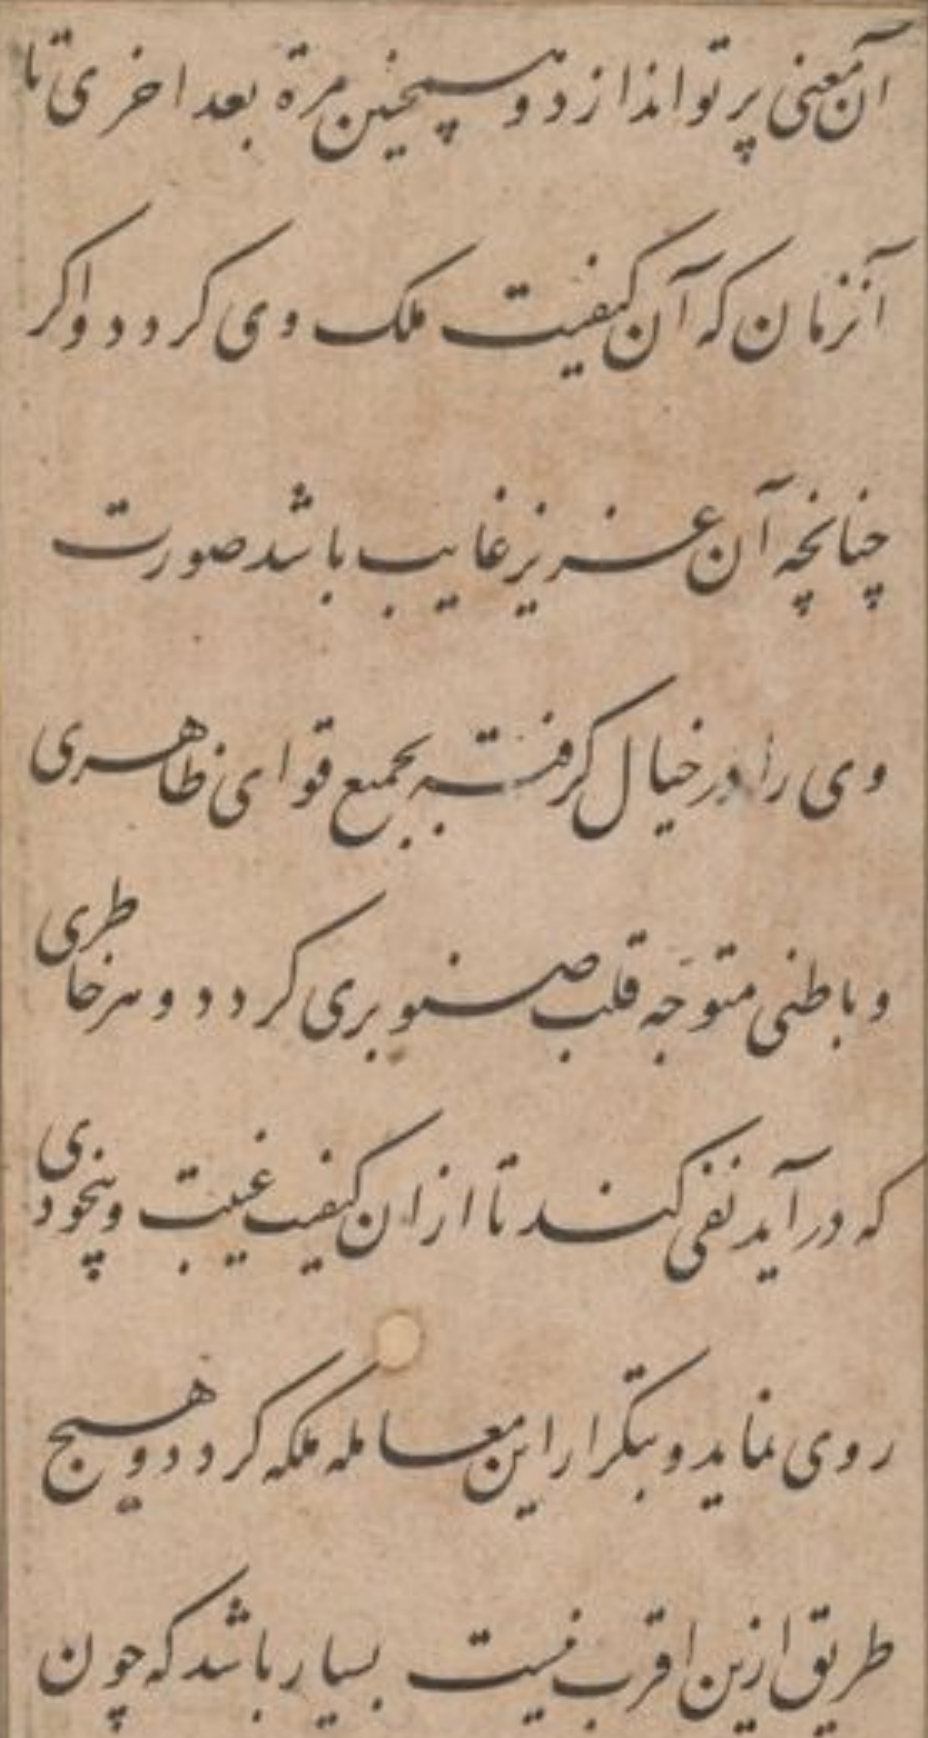 آن معنی پرتو اندازد و همچنین مرة بعد اخری تا
آنزمان که آن کیفیت ملک وی کردد و اکر
چنانچه آن عزیز غایب باشد صورت
وی را در خیال کرفته بجمیع قوای ظاهری
و باطنی متوجه قلب صنوبری کردد و هر خاطری
که در آید نفی کند تا از ان کیفیت غیبت و بیخودی
روی نماید و بتکرار این معامله ملکه کردد و هیچ
طریق ازین اقرب نیست بسیار باشد که چون